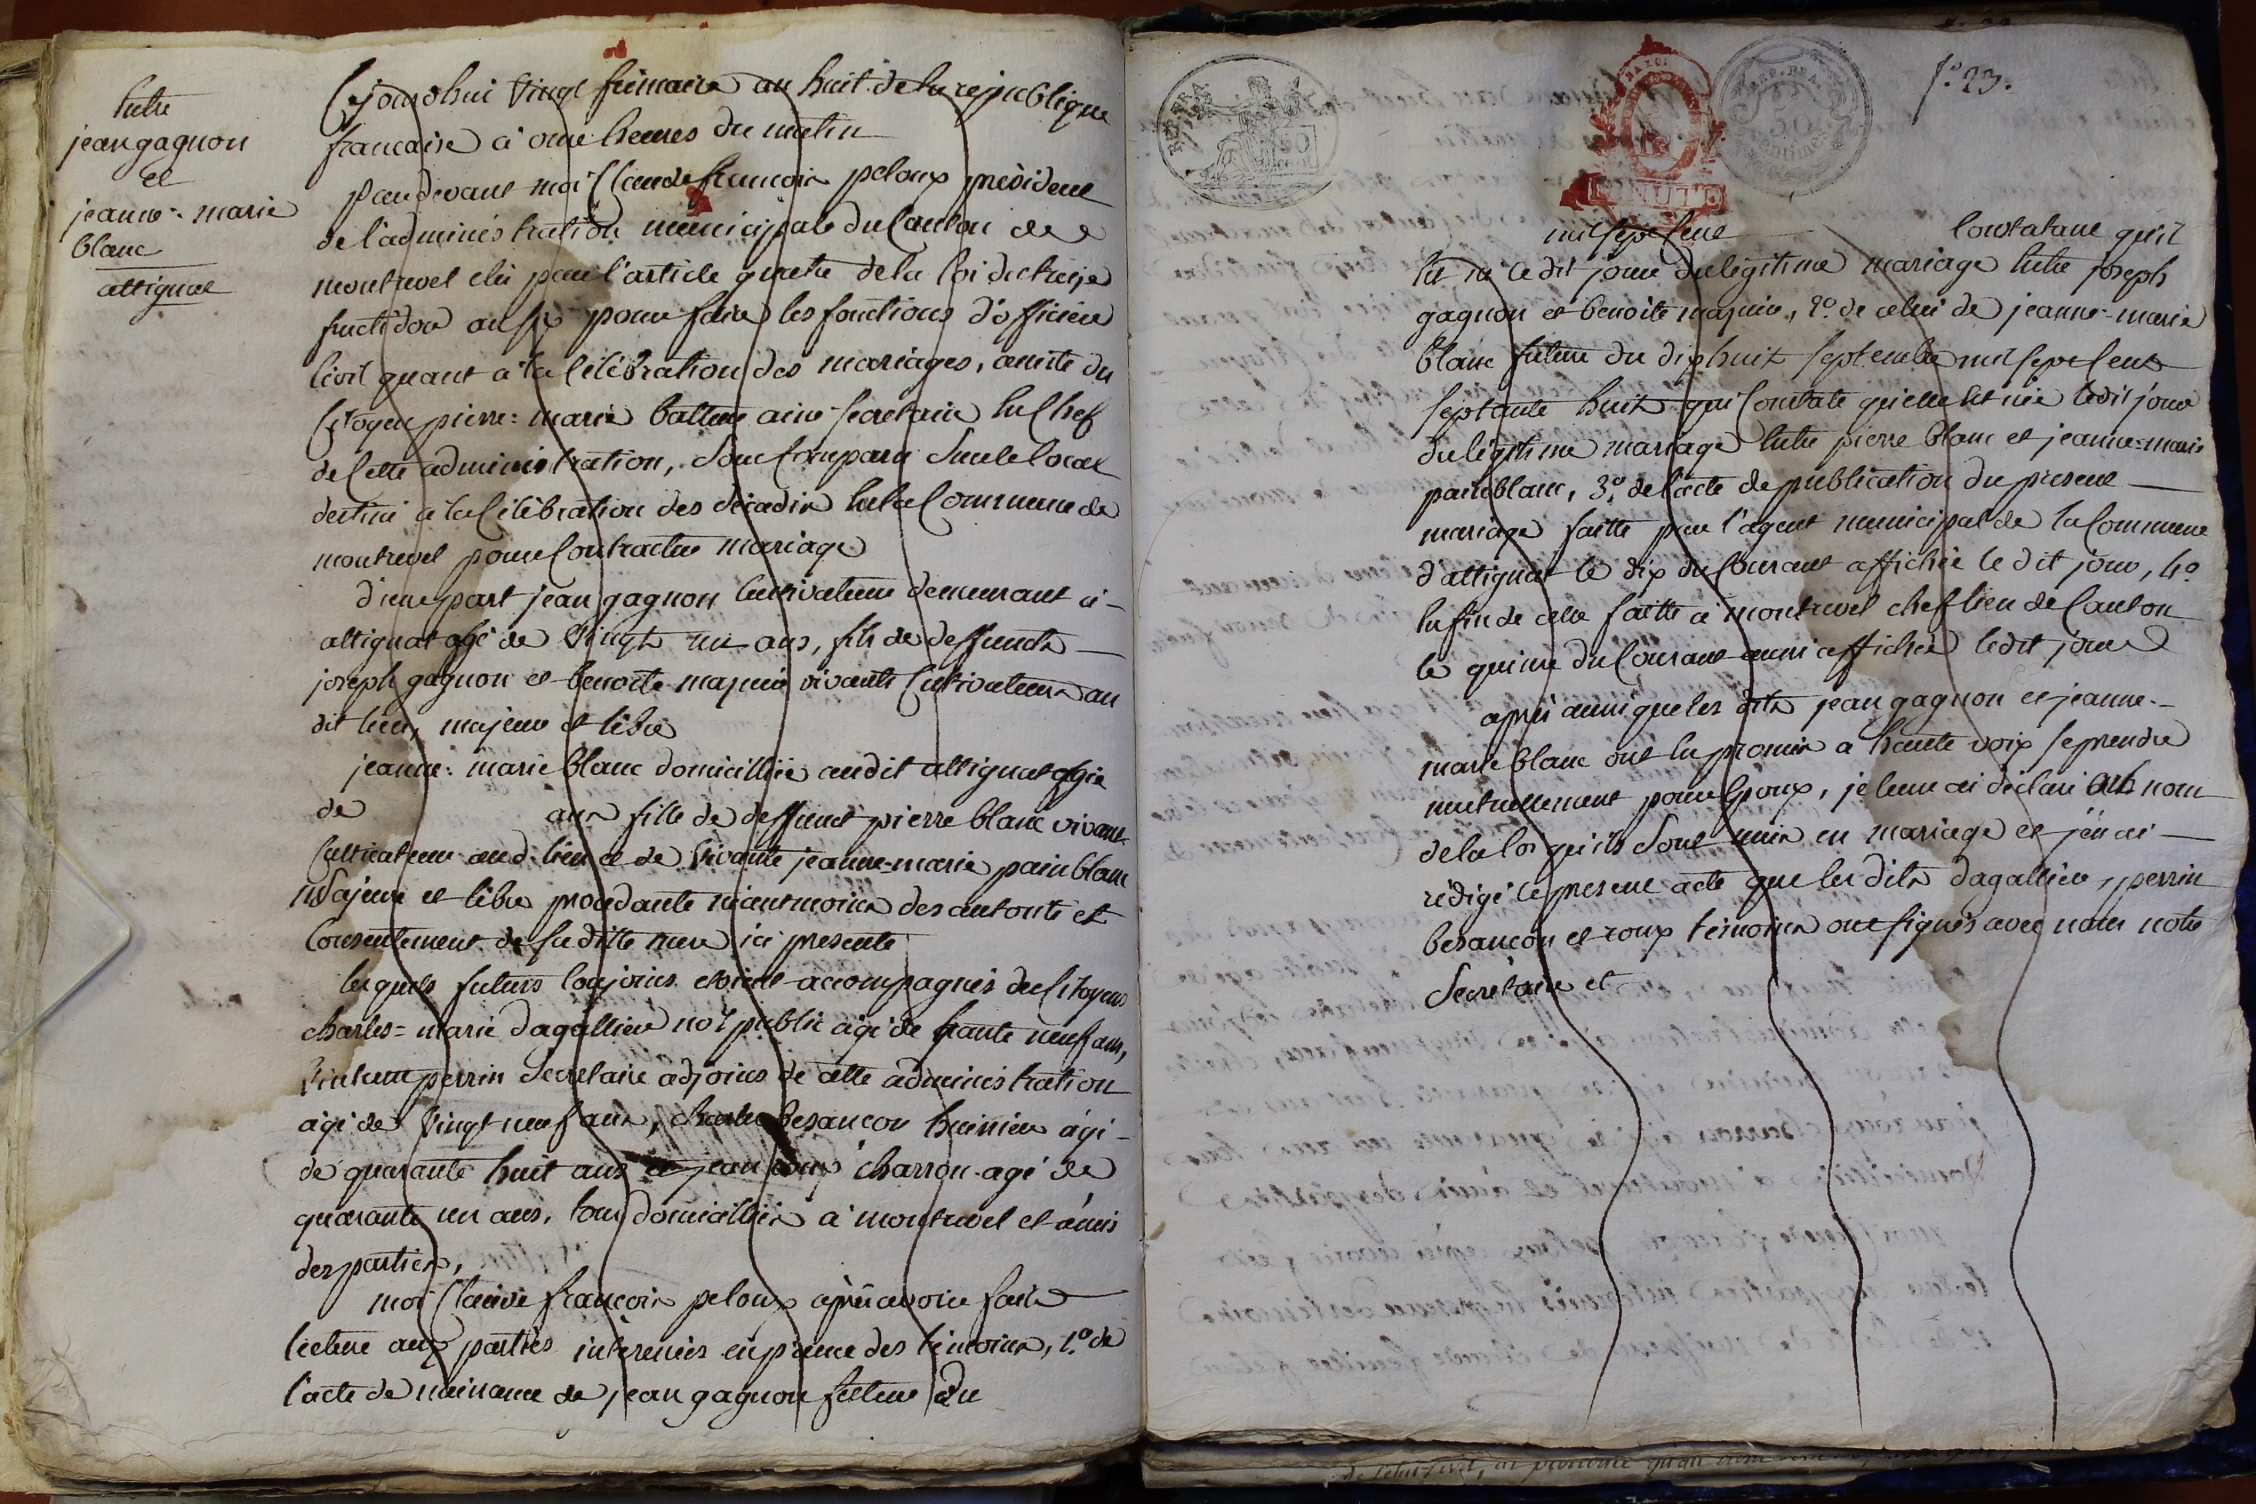 Entre
jean gagnon
et
jeanne-marie
blanc
attignat
Cejourdhui vingt frimaire an huit de la republique
francaise à onze heures du matin
pardevant moi Claude francois peloux président
de l'administration municipale du Canton de
montrevel élu par l'article quatre de la loi du treize
fructidor an six pour faire les fonctions d'officier
Civil quant à la Célébration des mariages, assisté du
Citoyen pierre-marie aine secretaire en Chef
de Cette administration, sont Comparu sur le local
destiné à la Célébration des décadis en la Commune de
montrevel pour Contracter mariage
d'une part jean gagnon Cultivateur demeurant à
attignat agé de vingt un ans, fils de deffuncts
joseph gagnon et benoite majuin vivants Cultivateurs au
dit lieu, majeur et libre
jeanne-marie blanc domicilliée audit attignat agée
de ans fille de deffunct pierre blanc vivant
Cultivateur aud. lieu et de vivante jeanne-marie painblanc
majeure et libre procédante néantmoins des autorité et
Consentement de sa ditte mere ici presente
lesquels futurs Conjoins etoient accompagnés des Citoyens
charles-marie dagallier not public agé de trante neuf ans,
perrin Secretaire adjoins de cette administration
agé de vingt neuf ans, charles besancon huissier agé
de quarante huit ans et jean roux charron agé de
quarante un ans, tous domicilliés à montrevel et amis
des parties,
moi Claude francois peloux après avoir fait
lecture aux parties intéressées en présence des témoins, 1.º de
l'acte de naissance de jean gagnon futur du
f.º 23.
REP. FRA.
50
centimes
mil sept Cent Constatant qu'il
est né ledit jour du légitime mariage entre joseph
gagnon et benoite majuin, 2.º de celui de jeanne-marie
blanc future du dix huit septembre mil sept Cent
septante huit qui Constate qu'elle est née ledit jour
du légitime mariage entre pierre blanc et jeanne-marie
painblanc, 3.º de l'acte de publication du présent
mariage faitte par l'agent municipal de la Commune
d'attignat le dix du Courant affichée le dit jour, 4.º
enfin de celle faitte à montrevel chef lieu de Canton
le quinze du Courant aussi affichée ledit jour
après aussi que les dits jean gagnon et jeanne-
marie blanc ont eu promis à haute voix se prendre
mutuellement pour Epoux, je leur ai déclaré au nom
de la loi qu'ils sont unis en mariage et j'en ai
rédigé le present acte que les dits dagallier, perrin
besancon et roux témoins ont signés avec nous notre
Secretaire et